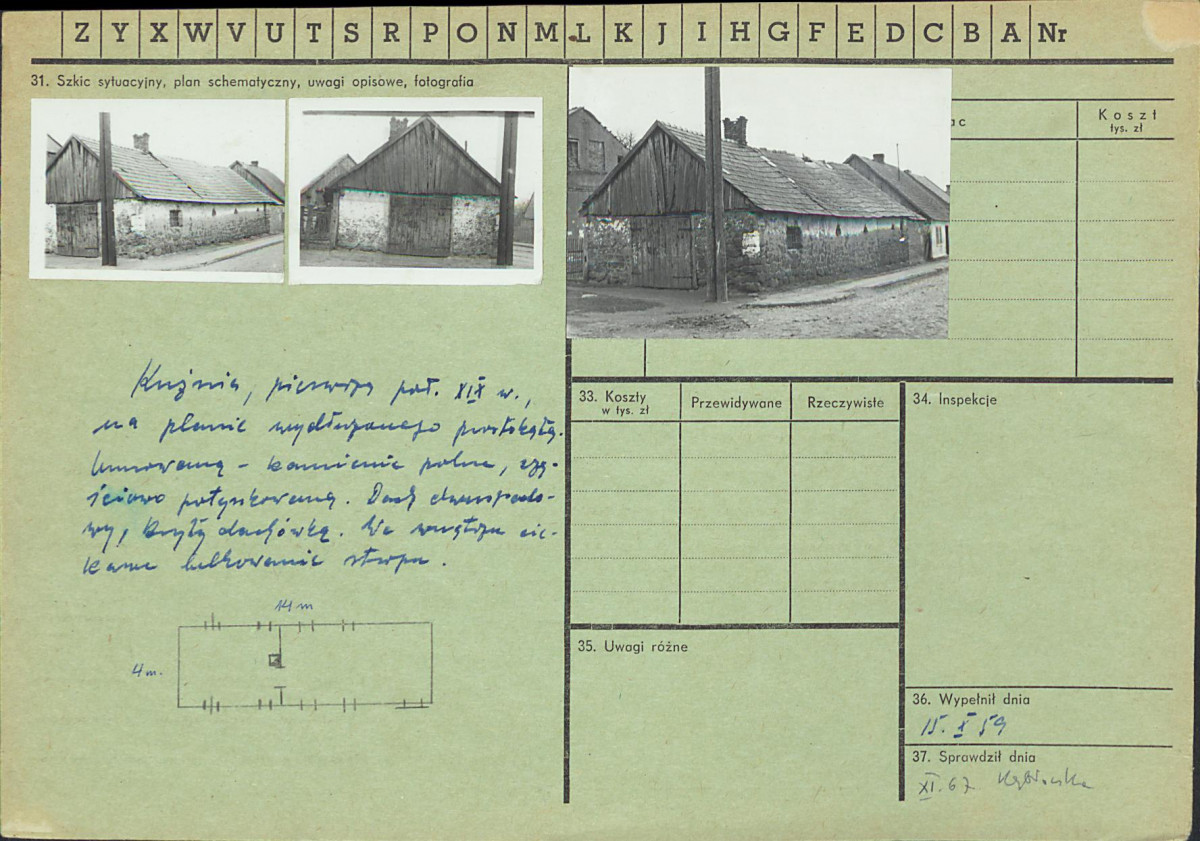 Z Y X W V U T S R P O N M L K J I H G F E D C B A Nr
31. Szkic sytuacyjny, plan schematyczny, uwagi opisowe, fotografia
ac
Koszt
tys. zł
Kuźnia, pierwsza poł. XIX w.,
na planie wydłużonego prostokąta.
Murowana - kamienie polne, czę-
ściowo potynkowana. Dach dwuspado-
wy, kryty dachówką. We wnętrzu cie-
kawe belkowanie stropu.
14 m
4 m.
33. Koszty
w tys. zł
Przewidywane
Rzeczywiste
34. Inspekcje
35. Uwagi różne
36. Wypełnił dnia
15. X 59
37. Sprawdził dnia
XI. 67